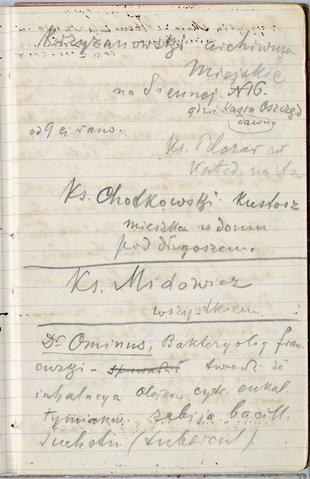 Krzyżanowski archiwum
Miejskie
na Siennej N16.
gdzie Kassa Oszczęd
dawna
od 9 ej rano.
Ks. w
Kated. na
Ks. Chotkowski. Kustosz
mieszka w domu
pod długoszem.
Ks. Midowicz
wszystkiem.
Dr Ominus, Bakteryolog fran
cuzki – twierdzi że
inhalacya olejków cytr. eukal.
tymianow. zabija bacill.
Suchotn (tubercul).